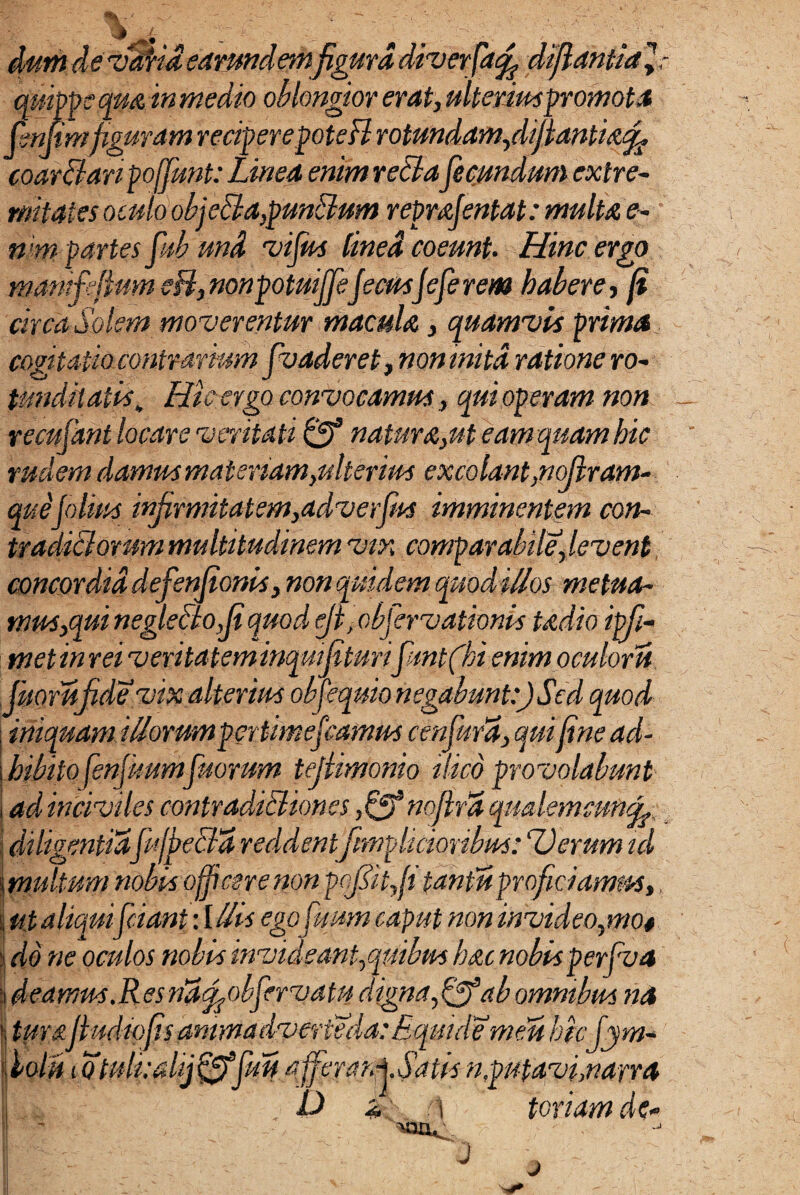 dum de variâ earundem figurâ diversaq́ distantiâ,
quippe quæ in medio oblongior erat, ulterius promota
sensim figuram recipere potest rotundam, distantiæq́
coarctari possunt: Linea enim recta secundum extre-
mitates oculo objecta, punctum repræsentat: multæ e-
nim partes sub unâ visus lineâ coeunt. Hinc ergo
manifestum est, non potuisse secus se se rem habere, si
circa Solem moverentur maculæ, quamvis prima
cogitatio contrarium svaderet, non initâ ratione ro-
tunditatis. Hîc ergo convocamus, qui operam non
recusant locare veritati & naturæ, ut eam quam hic
rudem damus materiam, ulterius excolant, nostram-
què solius infirmitatem, adversus imminentem con-
tradictorum multitudinem vix comparabilẽ, levent
concordiâ defensionis, non quidem quod illos metua-
mus, qui neglecto, si quod est, observationis tædio ipsi-
met in rei veritatem inquisituri sunt (hi enim oculorũ
suorũ fidẽ vix alterius obsequio negabunt:) Sed quod
iniquam illorum pertimescamus censurã, qui sine ad-
hibito sensuum suorum testimonio ilicò provolabunt
ad inciviles contradictiones, & nostrã qualemcunq́
diligentiã suspectã reddent simplicioribus: Verum id
multum nobis officere non possit, si tantũ proficiamus,
ut aliqui sciant: Illis ego suum caput non invideo, mo-
dò ne oculos nobis invideant, quibus hæc nobis persva
deamus. Res nãq́ observatu digna, & ab omnibus na
turæ studiosis animadvertẽda: Equidẽ meũ hîc sym-
bolũ cõtuli: alij & suũ afferant. Satis n. putavi, narra
D 2 toriam de-